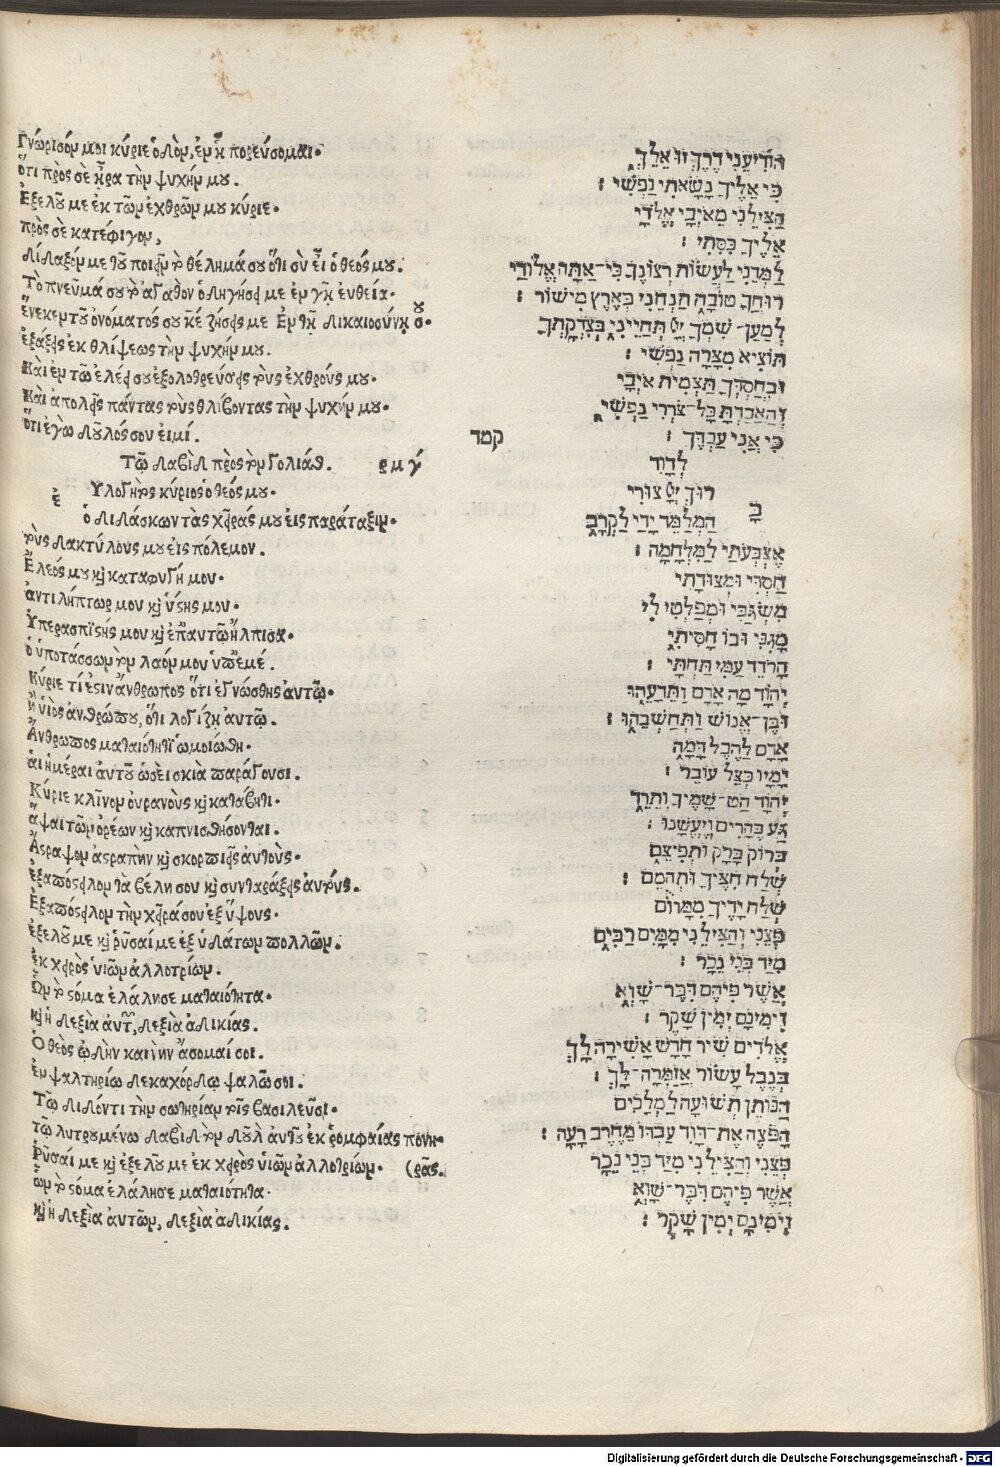 Γνώρισόν μοι κύριε ὁδὸν, ἐν ᾗ πορεύσομαι.
ὅτι πρὸς σὲ ἦρα τὴν ψυχήν μου.
Ἐξελοῦ με ἐκ τῶν ἐχθρῶν μου κύριε.
πρὸς σὲ κατέφυγον,
δίδαξόν με τοῦ ποιεῖν τὸ θέλημά σου ὅτι σὺ εἶ ὁ θεός μου.
Τὸ πνεῦμά σου τὸ ἀγαθὸν ὁδηγήσει με ἐν γῇ εὐθεία.
ἕνεκεν τοῦ ὀνόματός σου κε ζήσεις με Ἐν τῇ δικαιοσύνῃ σου.
ἐξάξεις ἐκ θλίψεως τὴν ψυχήν μου.
Καὶ ἐν τῷ ἐλέει σου ἐξολοθρεύσεις τοὺς ἐχθρούς μου.
Καὶ ἀπολεῖς πάντας τοὺς θλίβοντας τὴν ψυχήν μου.
ὅτι ἐγὼ δοῦλός σου εἰμί.
Τῷ δαβὶδ πρὸς τὸν γολιάθ. ρμγ
ἐ Υλογητὸς κύριος ὁ θεός μου.
ὁ διδάσκων τὰς χεῖράς μου εἰς παράταξιν.
τοὺς δακτύλους μου εἰς πόλεμον.
Ἔλεός μου καὶ καταφυγή μου.
ἀντιλήπτωρ μου καὶ ῥύστης μου.
Ὑπερασπιστής μου καὶ ἐπ' αὐτῷ ἤλπισα.
ὁ ὑποτάσσων τὸν λαόν μου ὑπ' ἐμέ.
Κύριε τί ἐστιν ἄνθρωπος ὅτι ἐγνώσθης αὐτῷ.
ἢ υἱὸς ἀνθρώπου, ὅτι λογίζῃ αὐτῷ.
Ἄνθρωπος ματαιότητι ὡμοιώθη.
αἱ ἡμέραι αὐτοῦ ὡσεὶ σκιὰ παράγουσι.
Κύριε κλῖνον οὐρανοὺς καὶ κατάβηθι.
ἅψαι τῶν ὀρέων καὶ καπνισθήσονται.
Ἄστραψον ἀστραπὴν καὶ σκορπιεῖς αὐτούς.
ἐξαπόστειλον τὰ βέλη σου καὶ συνταράξεις αὐτούς.
Ἐξαπόστειλον τὴν χεῖρά σου ἐξ ὕψους.
ἐξελοῦ με καὶ ῥῦσαί με ἐξ ὑδάτων πολλῶν.
ἐκ χειρὸς υἱῶν ἀλλοτρίων.
Ὧν τὸ στόμα ἐλάλησε ματαιότητα.
καὶ ἡ δεξιὰ αὐτῶν, δεξιὰ ἀδικίας.
Ὁ θεὸς ᾠδὴν καινὴν ᾄσομαί σοι.
ἐν ψαλτηρίῳ δεκαχόρδῳ ψαλῶ σοι.
Τῷ διδόντι τὴν σωτηρίαν τοῖς βασιλεῦσι.
τῷ λυτρουμένῳ δαβὶδ τὸν δοῦλ αὐτοῦ ἐκ ῥομφαίας πονη-
Ῥῦσαί με καὶ ἐξελοῦ με ἐκ χειρὸς υἱῶν ἀλλοτρίων. (ρᾶς.
ὧν τὸ στόμα ἐλάλησε ματαιότητα.
καὶ ἡ δεξιὰ αὐτῶν, δεξιὰ ἀδικίας.
הוֹדִיעֵנִי דֶרֶךְ זוּ אֵלֵךְ
כִּי אֵלֶיךָ נָשָׂאתִי נַפְשִׁי :
הַצִּילֵנִי מֵאֹיְבַי
אֵלֶיךָ כִסִּתִי :
לַמְּדֵנִי לַעֲשׂוֹת רְצוֹנֶךָ כִּי־אַתָּה אֱלוֹדַי
רוּחֲךָ טוֹבָה תַּנְחֵנִי בְּאֶרֶץ מִישׁוֹר :
לְמַעַן־שִׁמְךָ תְּחַיֵּינִי בְּצִדְקָתְךָ
תּוֹצִיא מִצָּרָה נַפְשִׁי :
וּבְחַסְדְּךָ תַּצְמִית אֹיְבָי
וְהַאֲבַדְתָּ כָּל־צֹרְרֵי נַפְשִׁי
כִּי אֲנִי עַבְדֶּךָ :
קמד
לְדָוִד
בָּ רוּךְ צוּרִי
הַמְלַמֵּד יָדַי לַקְרָב
אֶצְבְּעֹתַי לַמִּלְחָמָה :
חַסְדִּי וּמְצוּדָתִי
מִשְׂגַּבִּי וּמְפַלְטִי לִי
מָגִנִּי וּבוֹ חָסִיתִי
הָרֹדֵד עַמִּי תַחְתָּי :
יְהוָֹד מָה אָדָם וַתֵּדָעֵהוּ
וּבֶן־אֱנוֹשׁ וַתְּחַשְּׁבֵהוּ :
אָדָם לַהֶבֶל דָּמָה
יָמָיו כְּצֵל עוֹבֵר :
יְהוָֹד הַט־שָׁמֶיךָ וְתֵרֵד
גַּע בֶּהָרִים וְיֶעֱשָׁנוּ :
בְּרוֹק בָּרָק וּתְפִיצֵם
שְׁלַח חִצֶּיךָ וּתְהֻמֵּם :
שְׁלַח יָדֶיךָ מִמָּרוֹם
פְּצֵנִי וְהַצִּילֵנִי מִמַּיִם רַבִּים
מִיַּד בְּנֵי נֵכָר :
אֲשֶׁר פִּיהֶם דִּבֶּר־שָׁוְא
וִימִינָם יְמִין שָׁקֶר :
אֱלֹדִים שִׁיר חָדָשׁ אָשִׁירָה לָךְ
בְּנֵבֶל עָשׂוֹר אֲזַמְּרָה־לָּךְ :
הַנּוֹתֵן תְּשׁוּעָה לַמְּלָכִים
הַפּוֹצֶה אֶת־דָּוִד עַבְדּוֹ מֵחֶרֶב רָעָה :
פְּצֵנִי וְהַצִּילֵנִי מִיַּד בְּנֵי נֵכָר
אֲשֶׁר פִּיהֶם דִּבֶּר־שָׁוְא
וִימִינָם יְמִין שָׁקֶר :
Digitalisierung gefördert durch die Deutsche Forschungsgemeinschaft - DFG